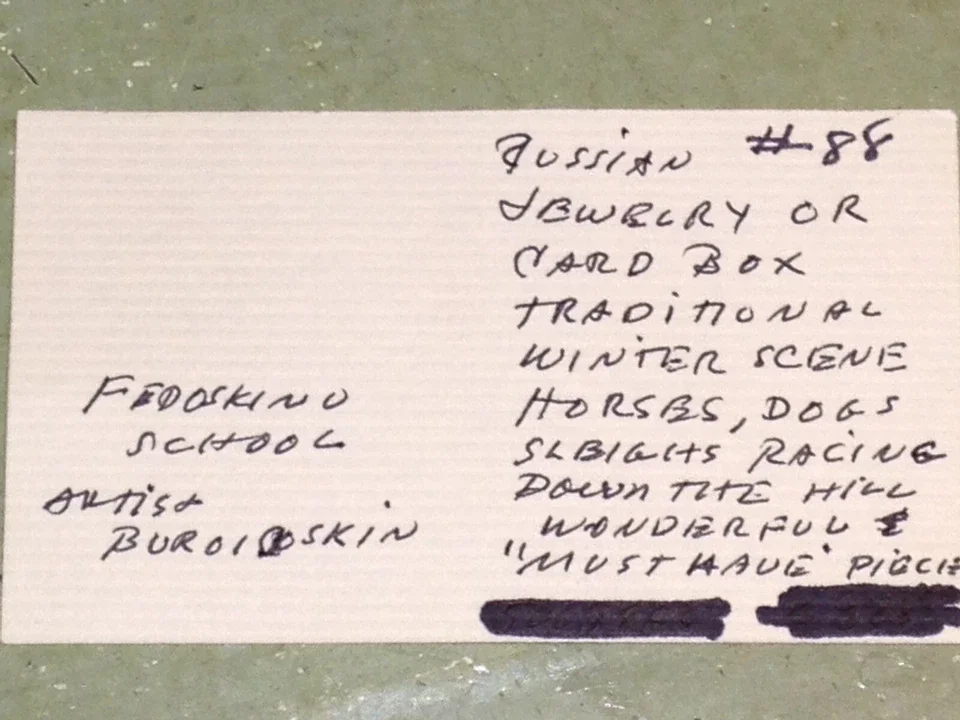 Russian #88
JEWELRY OR
CARD BOX
TRADITIONAL
WINTER SCENE
HORSES, DOGS
SLEIGHS RACING
DOWN THE HILL
WONDERFUL &
"MUST HAVE" PIECE
FEDOSKINO
SCHOOL
ARTIST